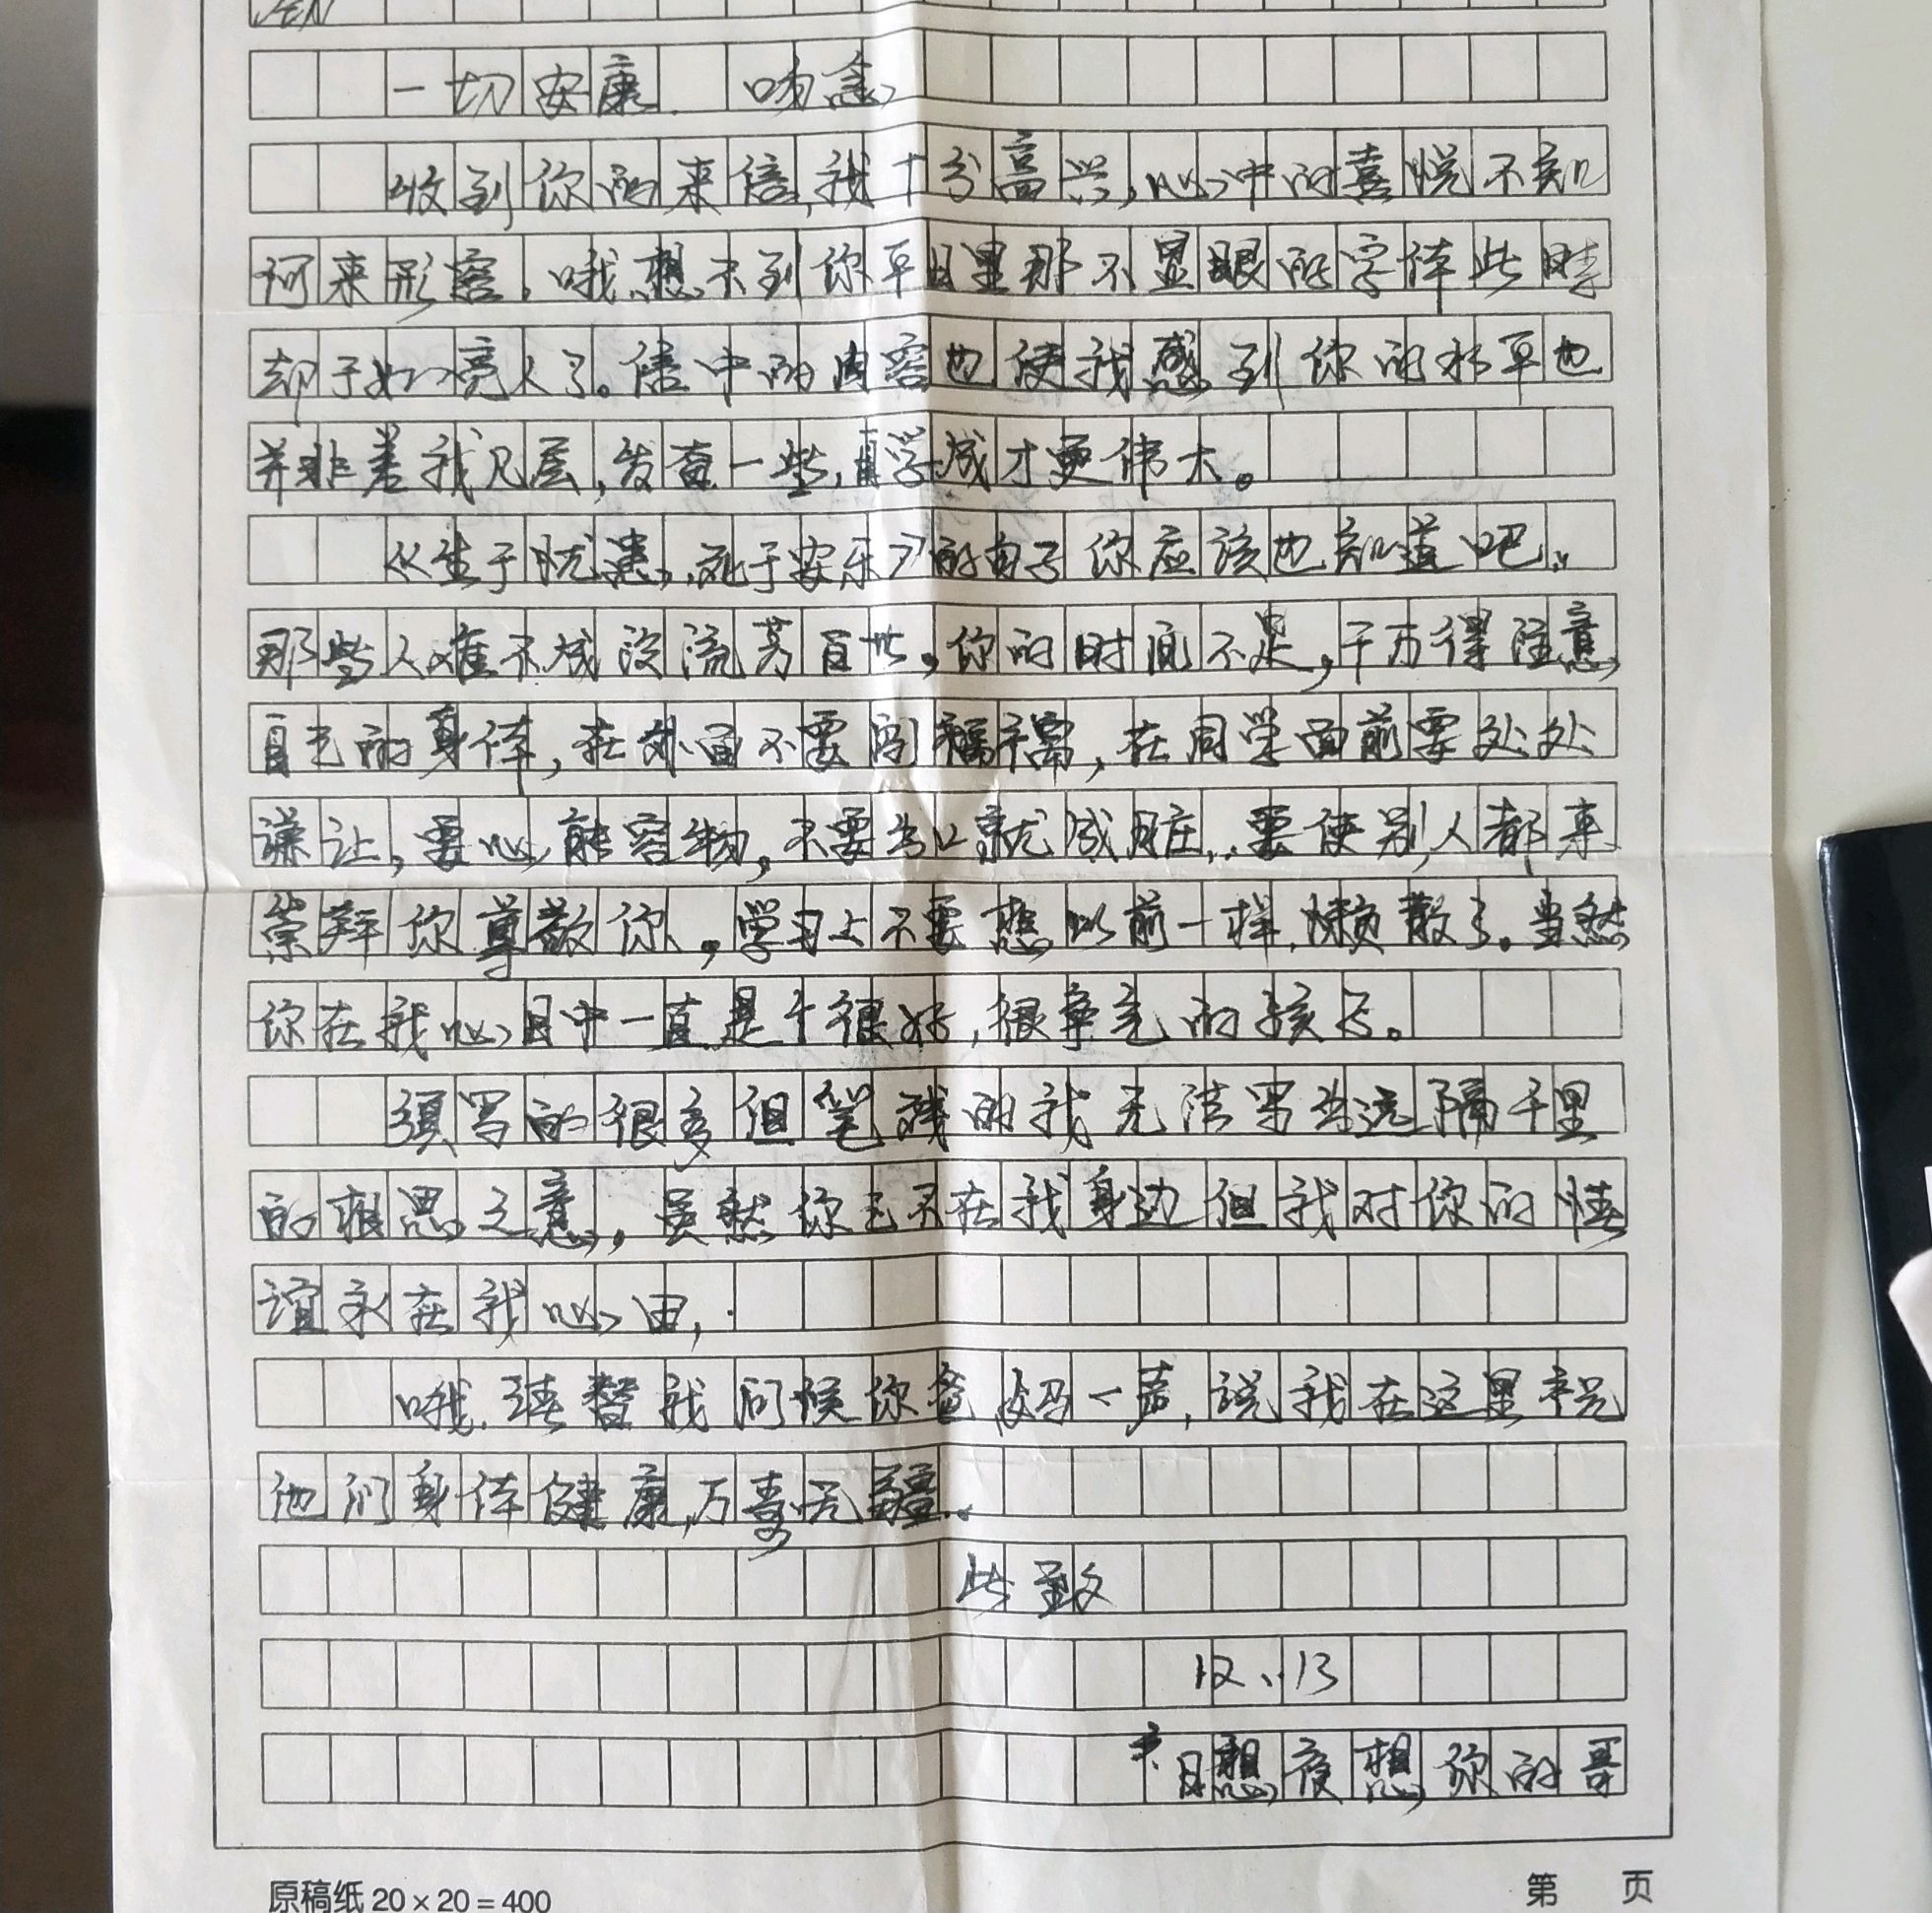 一切安康. 吻念
收到你的来信,我十分高兴,心中的喜悦不知
何来形容。哦,想不到你平日里那不显眼的字体些时
却于如亮人了。信中的内容也使我感到你的水平也
并非差我几层,发奋一些,自学成才更伟大。
“生于忧患,死于安乐”的句子你应该也知道吧。
那些人难不成没流芳百世,你的时间不足,千万得注意
自己的身体,在外面不要闯祸,在同学面前要处处
谦让,要心能容物,不要当成,要使别人都来
崇拜你尊敬你,学习上不要想以前一样,懒散了。当然
你在我心目中一直是个很好,很争气的孩子。
须写的很多但笔残的我无法写出远隔千里
的相思之意,虽然你已不在我身边但我对你的情
谊永在我心中,
哦.请替我问候你爸妈一声,说我在这里祝
他们身体健康,万寿无疆。
些致
12、13
日想夜想你的哥
原稿纸 20×20=400
第 页